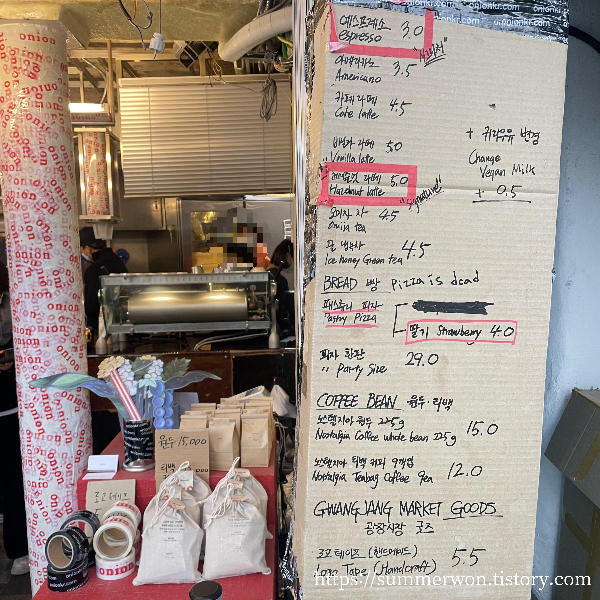 onionkr.com
onionkr.com
에스프레소 3.0
espresso
"시그니처"
아메리카노 3.5
Americano
카페라떼 4.5
Cafe latte
바닐라 라떼 5.0
Vanilla latte
+ 귀리우유 변경
Change
Vegan Milk
+ 0.5
헤이즐넛 라떼 5.0
Hazelnut latte
"signature"
오미자 차 4.5
Omija tea
꿀 냉녹차 4.5
Ice honey Green tea
BREAD 빵 pizza is dead
패스츄리 피자
Pastry Pizza
딸기 Strawberry 4.0
피자 한판 29.0
" Party Size
COFFEE BEAN 원두·티백
노스텔지아 원두 225g 15.0
Nostalgia Coffee whole bean 225g
노스텔지아 티백 커피 9개입 12.0
Nostalgia Teabag Coffee 9ea
GWANGJANG MARKET GOODS
광장시장 굿즈
로고 테이프 (핸드메이드) 5.5
Logo Tape (Handcraft)
onion
원두 15,000
티백
로고테이프
onion
https://summerwon.tistory.com